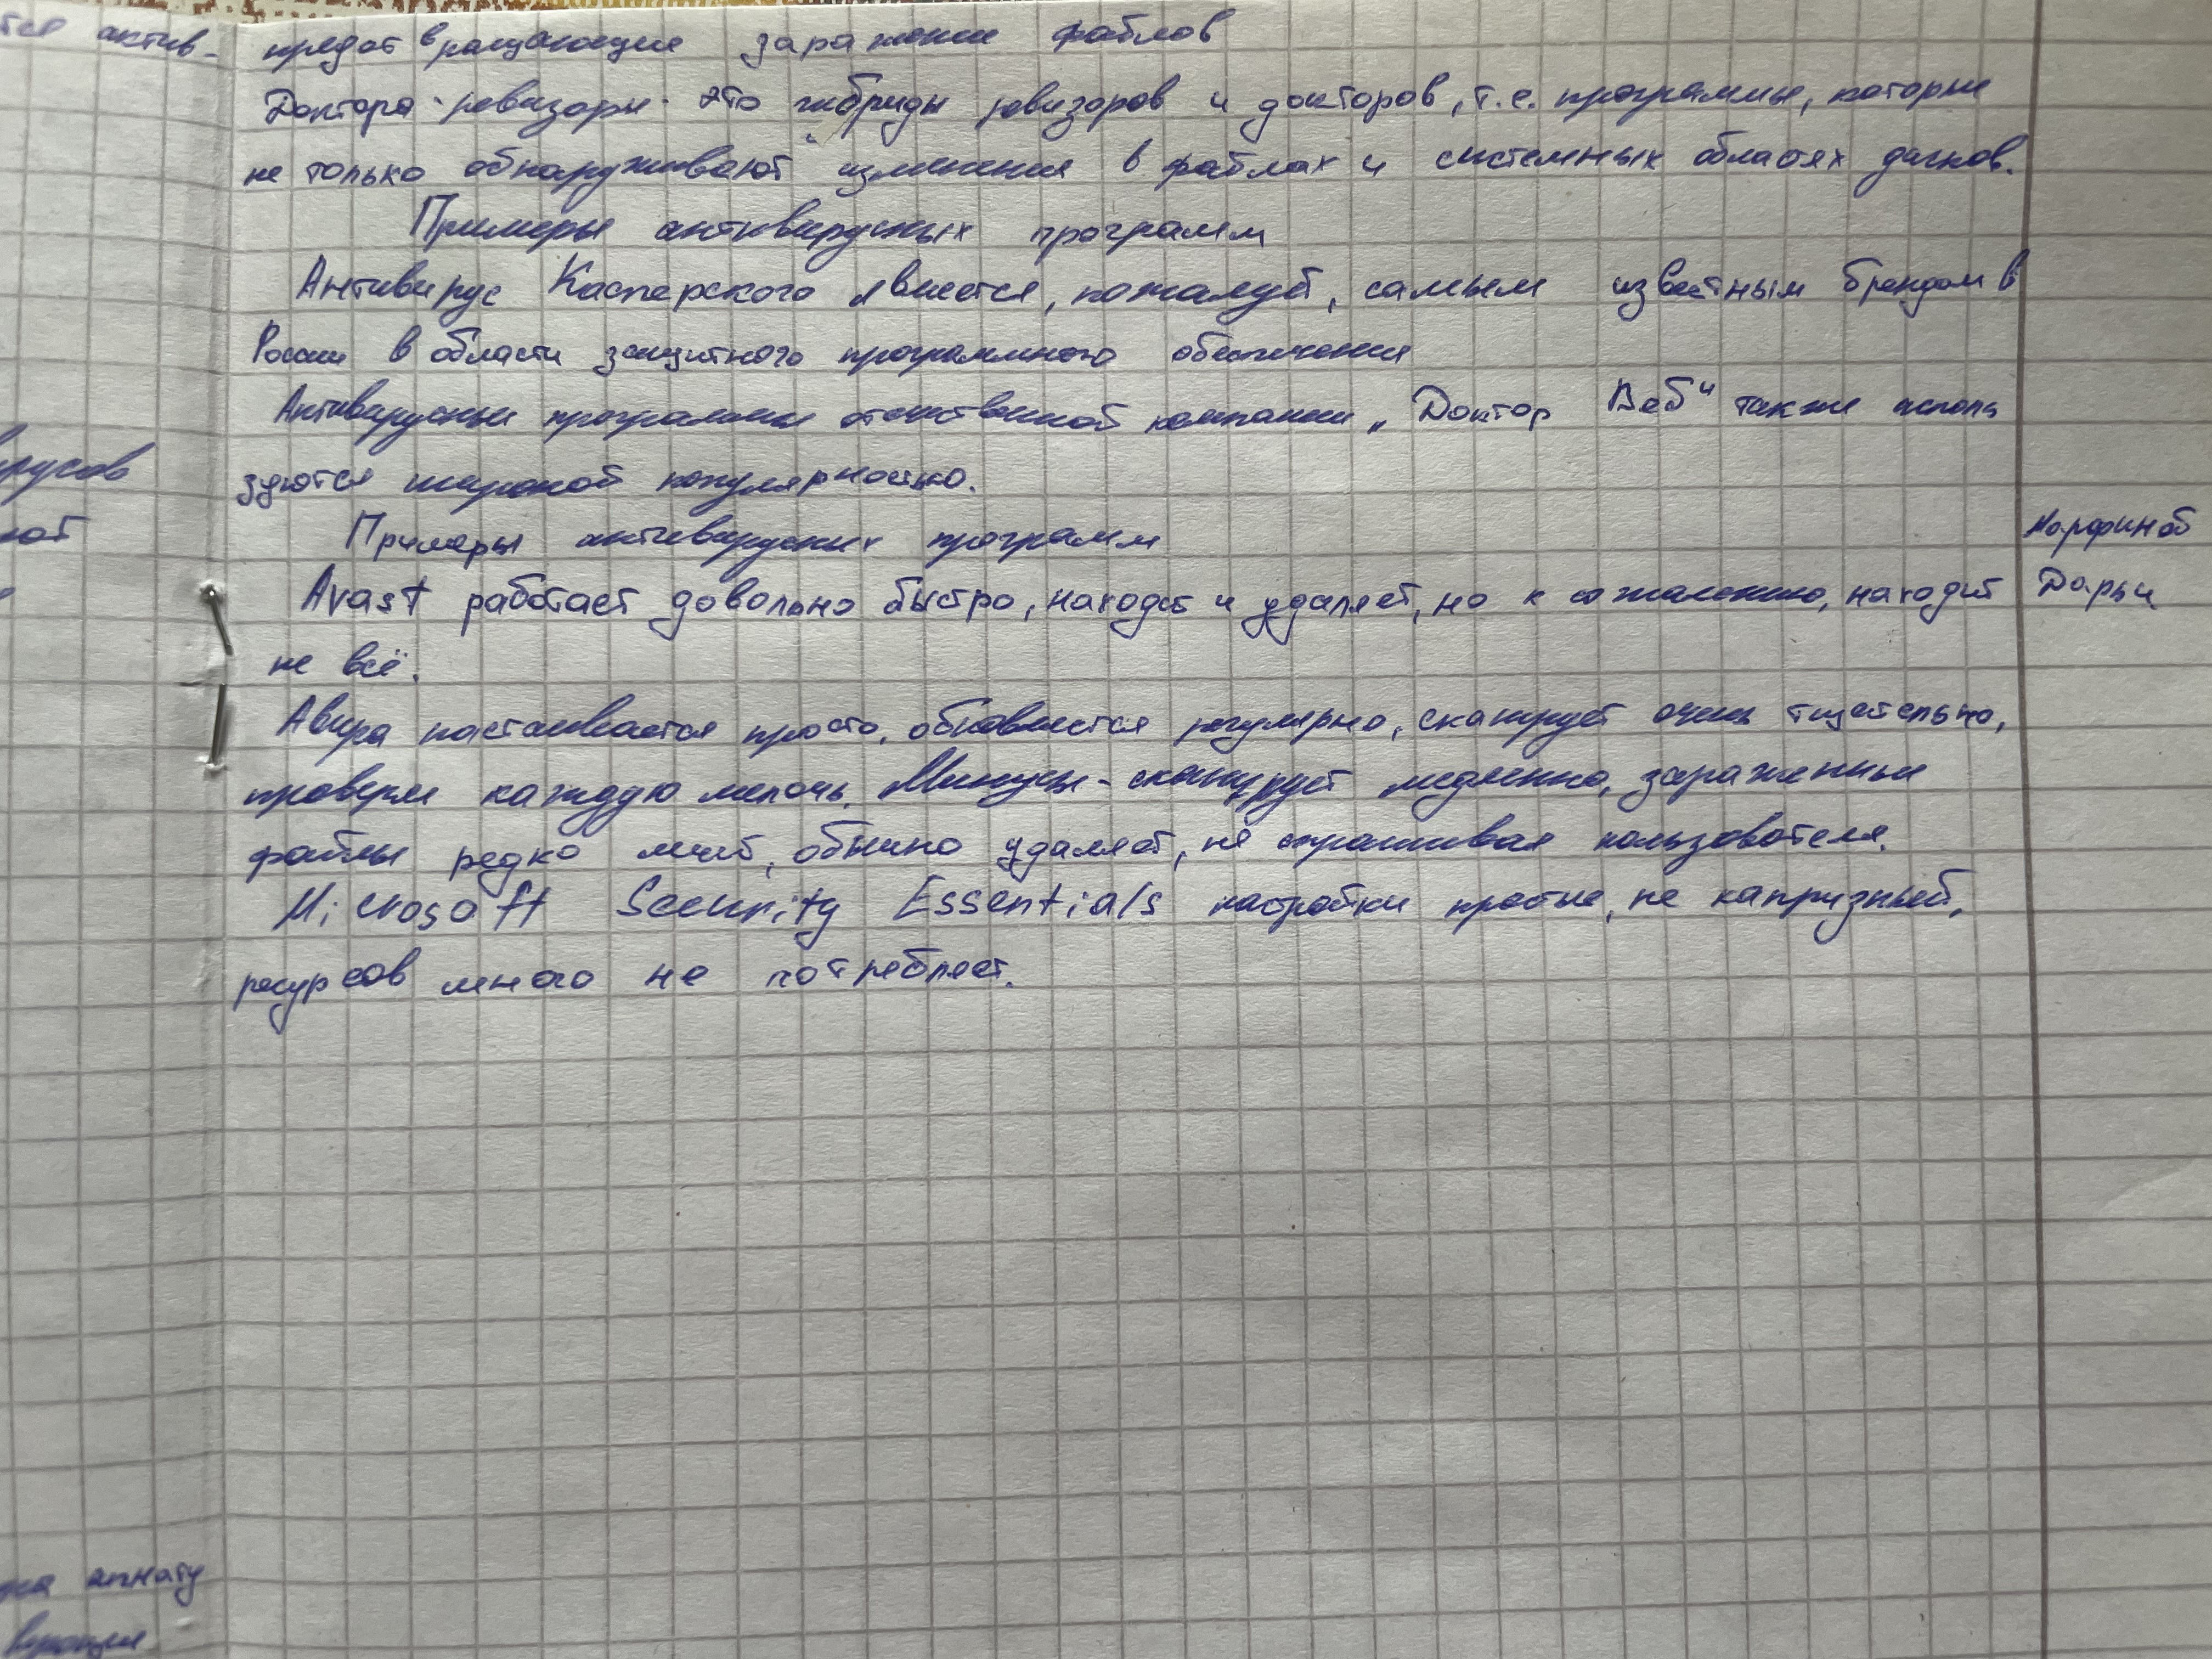 тся актив-
предотвращающие заражение файлов
Доктора-ревизоры - это гибриды ревизоров и докторов, т.е. программы, которые
не только обнаруживают изменения в файлах и системных областях дисков.
Примеры антивирусных программ
Антивирус Касперского является, пожалуй, самым известным брендом в
России в области защитного программного обеспечения
Антивирусные программы отечественной компании „Доктор Веб" также исполь
зуются широкой популярностью.
Примеры антивирусных программ
Avast работает довольно быстро, находит и удаляет, но к сожалению, находит
не всё.
Авира настаивается просто, обновляется регулярно, сканирует очень тщательно,
проверяя каждую мелочь. Минусы - сканирует медленно, зараженные
файлы редко лечит, обычно удаляет, не спрашивая пользователя.
Microsoft Security Essentials настройки простые, не капризный,
ресурсов много не потребляет.
Дарьи
русов